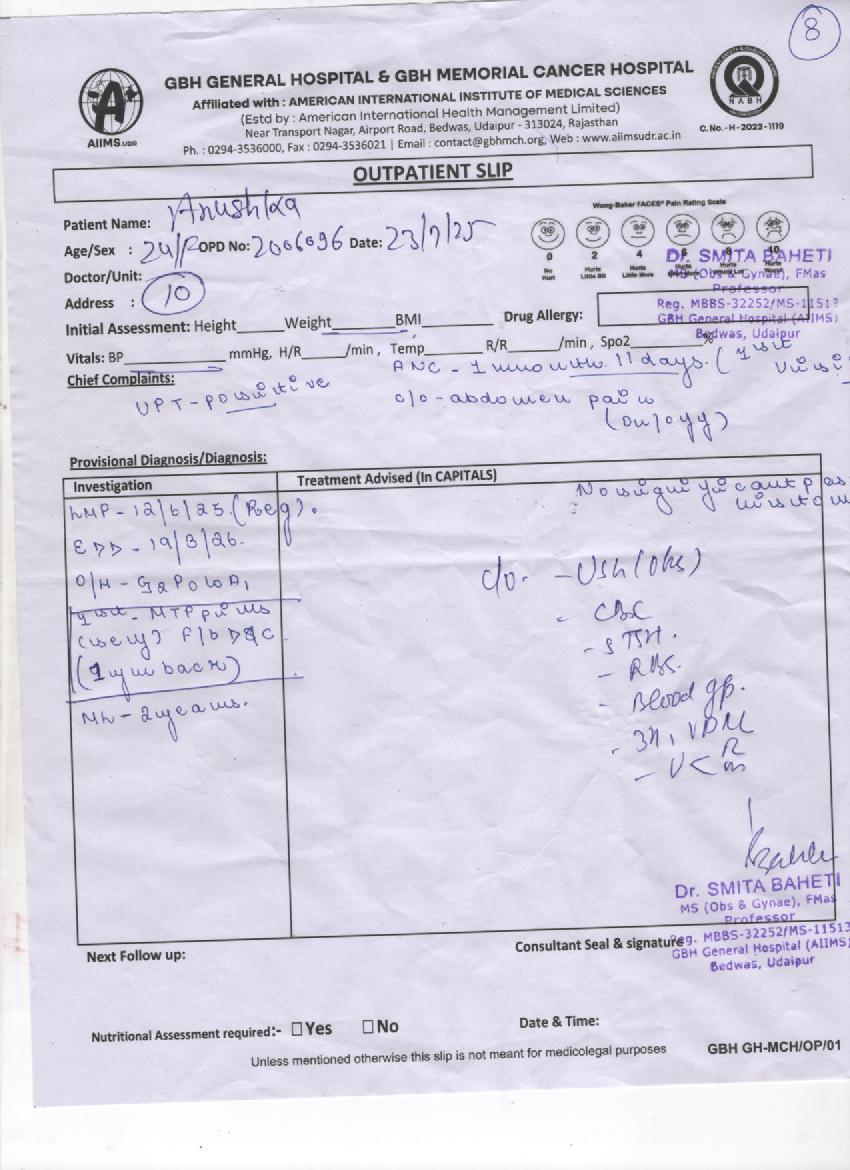 8
GBH GENERAL HOSPITAL & GBH MEMORIAL CANCER HOSPITAL
Affiliated with : AMERICAN INTERNATIONAL INSTITUTE OF MEDICAL SCIENCES
(Estd by : American International Health Management Limited)
Near Transport Nagar, Airport Road, Bedwas, Udaipur - 313024, Rajasthan
Ph. : 0294-3536000, Fax : 0294-3536021 | Email : contact@gbhmch.org, Web : www.aiimsudr.ac.in
AIIMS.UDR
NABH
C.No.-H-2023-1119
OUTPATIENT SLIP
Patient Name: Anushka
Age/Sex : 24/F OPD No: 2006096 Date: 23/7/25
Doctor/Unit:
Address : 10
Wong-Baker FACES® Pain Rating Scale
0 2 4 6 8 10
No Hurt Hurts Little Bit Hurts Little More Hurts Hurts Whole Lot Hurts Worst
Dr. SMITA BAHETI
MS (Obs & Gynae), FMas
Professor
Reg. MBBS-32252/MS-11513
GBH General Hospital (AIIMS)
Bedwas, Udaipur
Initial Assessment: Height Weight BMI Drug Allergy:
Vitals: BP mmHg, H/R /min , Temp R/R /min , Spo2 %
Chief Complaints:
ANC - 1 month 11 days. (1st visi
UPT - positive
c/o - abdomen pain
(on/off)
Provisional Diagnosis/Diagnosis:
Investigation
Treatment Advised (In CAPITALS)
No significant pas
LMP - 12/6/25. (Reg).
EDD - 19/3/26.
O/H - G2P0L0A1
1st - MTP pills
F/b D&C
(1 year back)
Mh - 2 years.
c/o. - USG (Obs)
- CBC
- S TSH.
- RBS.
- Blood gp.
- 3H, VDRL
Dr. SMITA BAHETI
MS (Obs & Gynae), FMas
Professor
Reg. MBBS-32252/MS-11513
GBH General Hospital (AIIMS)
Bedwas, Udaipur
Next Follow up:
Consultant Seal & signature
Nutritional Assessment required:- ☐Yes ☐No
Date & Time:
Unless mentioned otherwise this slip is not meant for medicolegal purposes
GBH GH-MCH/OP/01